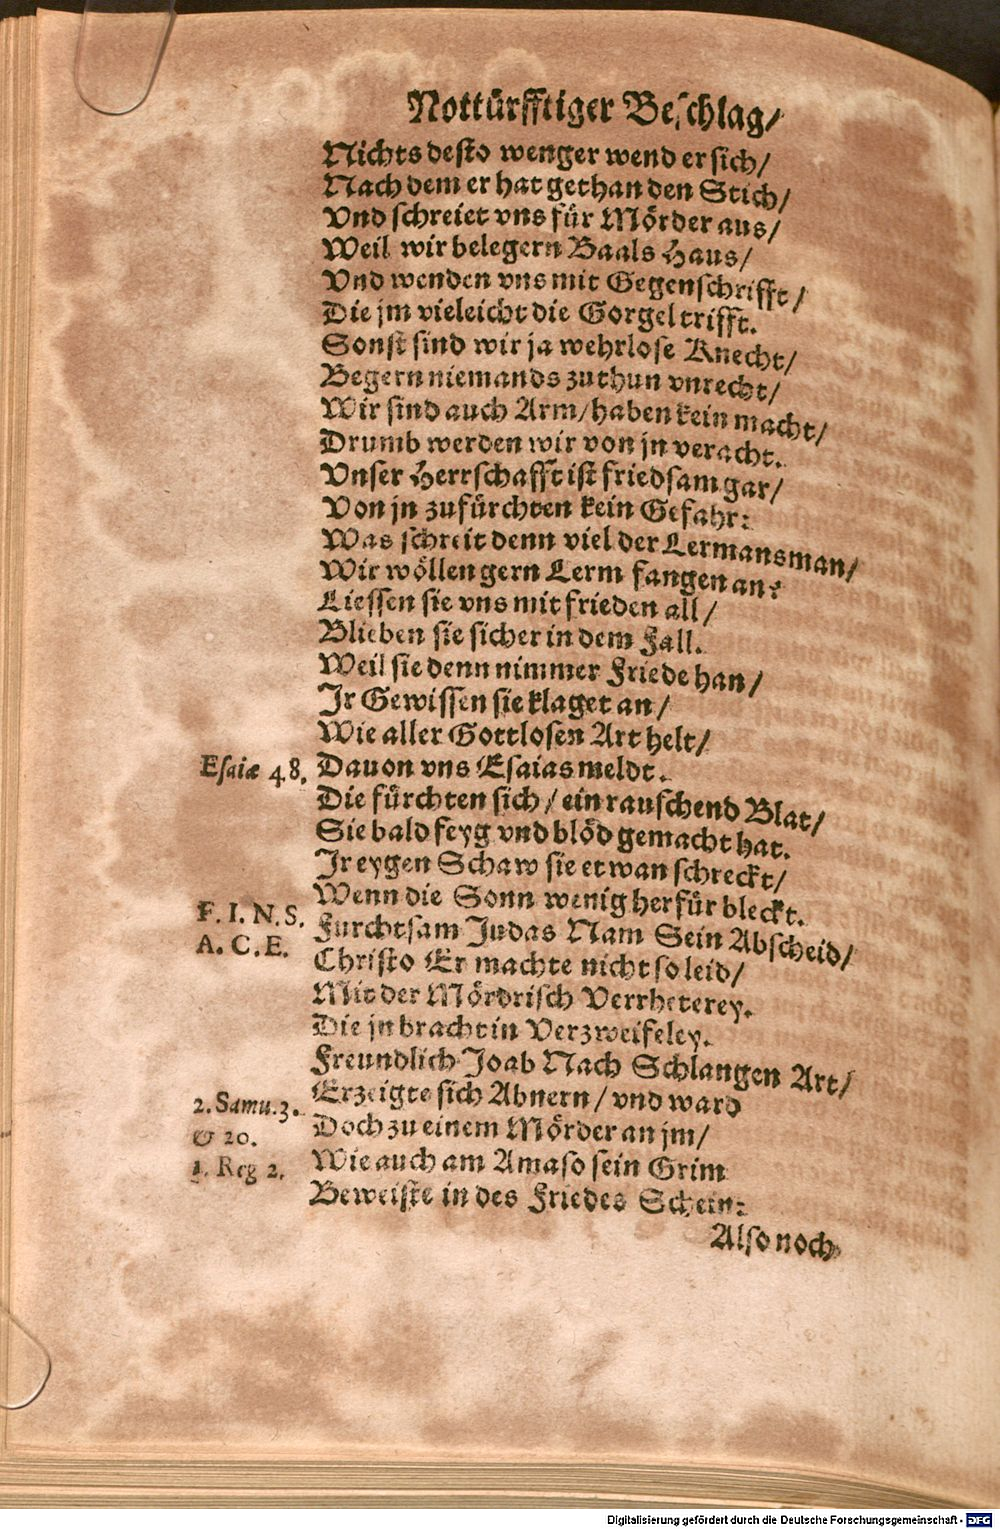 Nottürfftiger Beschlag/
Nichts desto wenger wend er sich/
Nach dem er hat gethan den Stich/
Vnd schreiet vns für Mörder aus/
Weil wir belegern Baals Haus/
Vnd wenden vns mit Gegenschrifft/
Die jm vieleicht die Gorgel trifft.
Sonst sind wir ja wehrlose Knecht/
Begern niemands zuthun vnrecht/
Wir sind auch Arm/ haben kein macht/
Drumb werden wir von jn veracht.
Vnser Herrschafft ist friedsam gar/
Von jn zufürchten kein Gefahr:
Was schreit denn viel der Lermansman/
Wir wöllen gern Lerm fangen an?
Liessen sie vns mit frieden all/
Blieben sie sicher in dem Fall.
Weil sie denn nimmer Friede han/
Jr Gewissen sie klaget an/
Wie aller Gottlosen Art helt/
Esaiæ 48. Dauon vns Esaias meldt.
Die fürchten sich/ ein rauschend Blat/
Sie bald feyg vnd blöd gemacht hat.
Jr eygen Schaw sie etwan schreckt/
Wenn die Sonn wenig herfür bleckt.
F. I. N. S. Furchtsam Judas Nam Sein Abscheid/
A. C. E. Christo Er machte nicht so leid/
Mit der Mördrisch Verrheterey.
Die jn bracht in Verzweifeley.
Freundlich Joab Nach Schlangen Art/
2. Samu. 3. Erzeigte sich Abnern/ vnd ward
& 20. Doch zu einem Mörder an jm/
1. Reg 2. Wie auch am Amaso sein Grim
Beweiste in des Friedes Schein:
Also noch
Digitalisierung gefördert durch die Deutsche Forschungsgemeinschaft - DFG